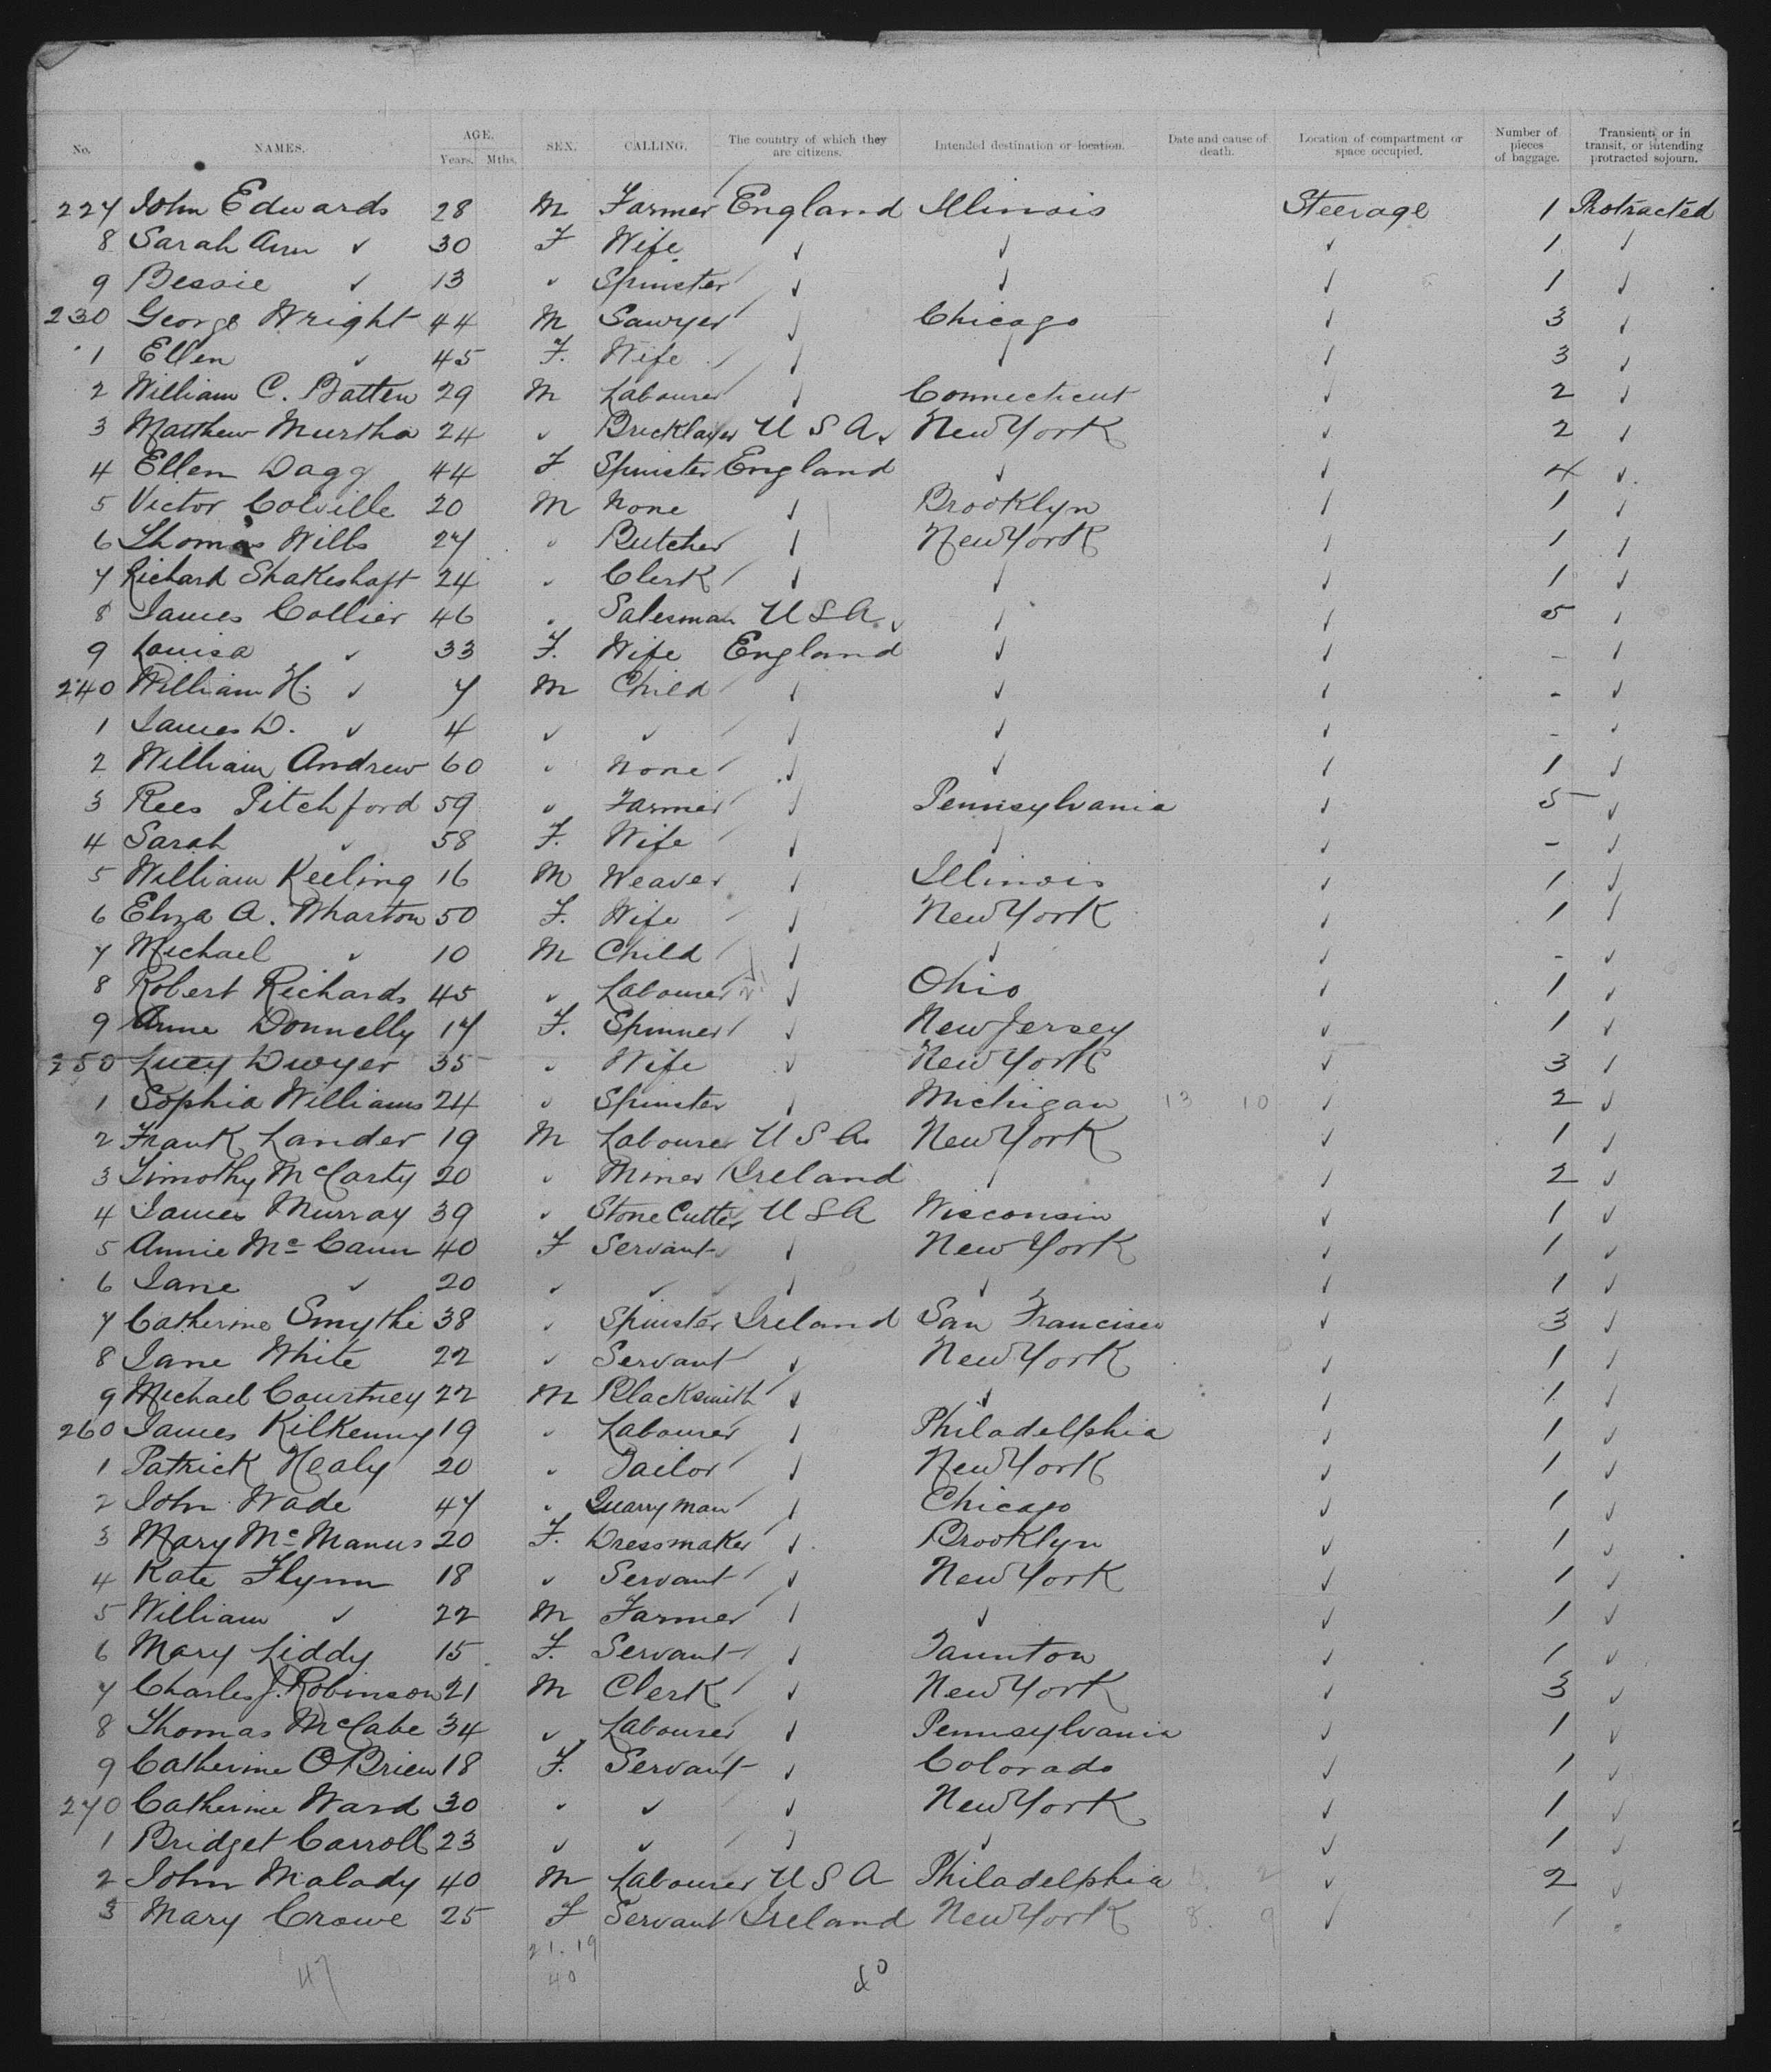 No. NAMES. AGE. Years. Mths. SEX. CALLING. The country of which they are citizens. Intended destination or location. Date and cause of death. Location of compartment or space occupied. Number of pieces of baggage. Transient, or in transit, or intending protracted sojourn.
227 John Edwards 28 M Farmer England Illinois Steerage 1 Protracted
8 Sarah Ann ✓ 30 F Wife ✓ ✓ ✓ 1 ✓
9 Bessie ✓ 13 ✓ Spinster ✓ ✓ ✓ 1 ✓
230 George Wright 44 M Sawyer ✓ Chicago ✓ 3 ✓
1 Ellen ✓ 45 F. Wife ✓ ✓ ✓ 3 ✓
2 William C. Batten 29 M Labourer ✓ Connecticut ✓ 2 ✓
3 Matthew Murtha 24 ✓ Bricklayer U S A. New York ✓ 2 ✓
4 Ellen Dagg 44 F Spinster England ✓ ✓ 4 ✓
5 Victor Colville 20 M None ✓ Brooklyn ✓ 1 ✓
6 Thomas Wills 27 ✓ Butcher ✓ New York ✓ 1 ✓
7 Richard Shakeshaft 24 ✓ Clerk ✓ ✓ ✓ 1 ✓
8 James Collier 46 ✓ Salesman U S A. ✓ ✓ 5 ✓
9 Louisa ✓ 33 F. Wife England ✓ ✓ - ✓
240 William H. ✓ 7 M Child ✓ ✓ ✓ - ✓
1 James D. ✓ 4 ✓ ✓ ✓ ✓ ✓ - ✓
2 William Andrew 60 ✓ None ✓ ✓ ✓ 1 ✓
3 Rees Pitchford 59 ✓ Farmer ✓ Pennsylvania ✓ 5 ✓
4 Sarah ✓ 58 F. Wife ✓ ✓ ✓ - ✓
5 William Keeling 16 M Weaver ✓ Illinois ✓ 1 ✓
6 Eliza A. Wharton 50 F. Wife ✓ New York ✓ 1 ✓
7 Michael ✓ 10 M Child ✓ ✓ ✓ - ✓
8 Robert Richards 45 ✓ Labourer ✓ Ohio ✓ 1 ✓
9 Anne Donnelly 17 F. Spinner ✓ New Jersey ✓ 1 ✓
250 Lucy Dwyer 35 ✓ Wife ✓ New York ✓ 3 ✓
1 Sophia Williams 24 ✓ Spinster ✓ Michigan 13 10 ✓ 2 ✓
2 Frank Lander 19 M Labourer U S A. New York ✓ 1 ✓
3 Timothy McCarty 20 ✓ Miner Ireland ✓ ✓ 2 ✓
4 James Murray 39 ✓ Stone Cutter U S A Wisconsin ✓ 1 ✓
5 Annie Mc Cann 40 F Servant ✓ New York ✓ 1 ✓
6 Jane ✓ 20 ✓ ✓ ✓ ✓ ✓ 1 ✓
7 Catherine Smythe 38 ✓ Spinster Ireland San Francisco ✓ 3 ✓
8 Jane White 22 ✓ Servant ✓ New York ✓ 1 ✓
9 Michael Courtney 22 M Blacksmith ✓ ✓ ✓ 1 ✓
260 James Kilkenny 19 ✓ Labourer ✓ Philadelphia ✓ 1 ✓
1 Patrick Healy 20 ✓ Tailor ✓ New York ✓ 1 ✓
2 John Wade 47 ✓ Quarryman ✓ Chicago ✓ 1 ✓
3 Mary Mc Manus 20 F. Dressmaker ✓ Brooklyn ✓ 1 ✓
4 Kate Flynn 18 ✓ Servant ✓ New York ✓ 1 ✓
5 William ✓ 22 M Farmer ✓ ✓ ✓ 1 ✓
6 Mary Liddy 15 F. Servant ✓ Taunton ✓ 1 ✓
7 Charles J. Robinson 21 M Clerk ✓ New York ✓ 3 ✓
8 Thomas McCabe 34 ✓ Labourer ✓ Pennsylvania ✓ 1 ✓
9 Catherine O'Brien 18 F. Servant ✓ Colorado ✓ 1 ✓
270 Catherine Ward 30 ✓ ✓ ✓ New York ✓ 1 ✓
1 Bridget Carroll 23 ✓ ✓ ✓ ✓ ✓ 1 ✓
2 John Malady 40 M Labourer U S A Philadelphia ✓ 2 ✓
3 Mary Crowe 25 F Servant Ireland New York 8. 9 ✓ 1
21. 19
47 40